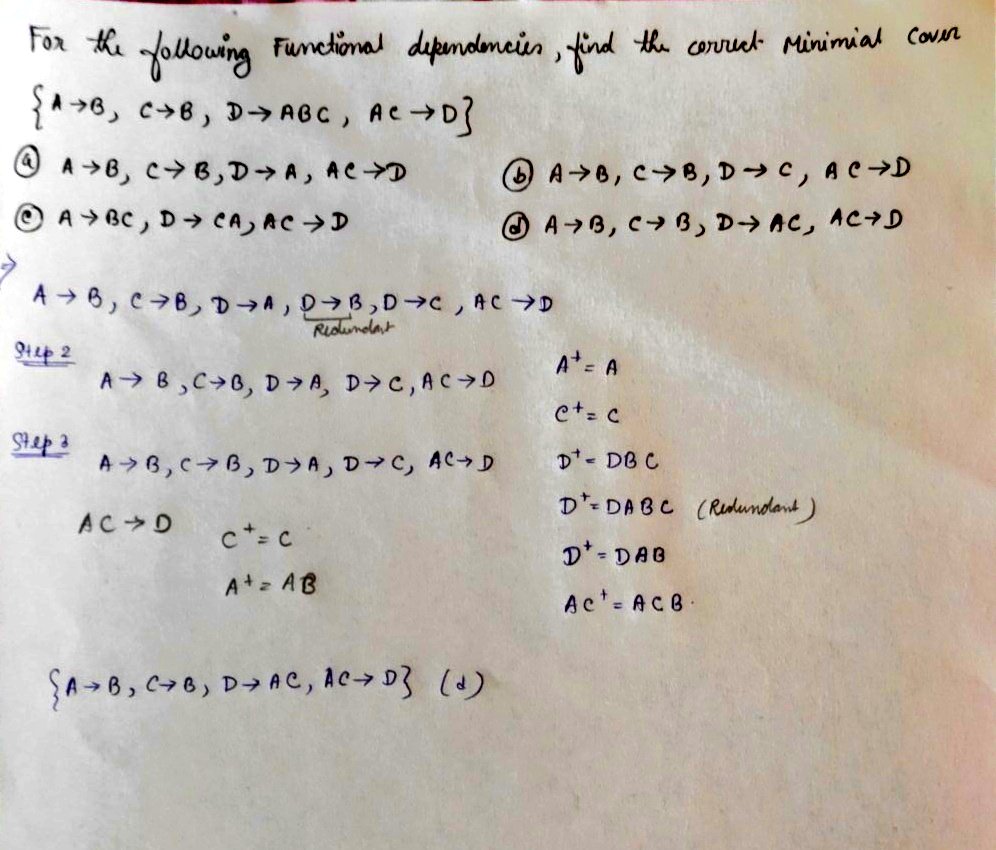 For the following Functional dependencies, find the correct Minimial Cover
{A→B, C→B, D→ABC, AC→D}
ⓐ A→B, C→B, D→A, AC→D
ⓑ A→B, C→B, D→C, AC→D
ⓒ A→BC, D→CA, AC→D
ⓓ A→B, C→B, D→AC, AC→D
⇒
A→B, C→B, D→A, D→B, D→C, AC→D
Redundant
Step 2
A→B, C→B, D→A, D→C, AC→D
Step 3
A→B, C→B, D→A, D→C, AC→D
AC→D
C⁺=C
A⁺=AB
A⁺=A
C⁺=C
D⁺=DBC
D⁺=DABC (Redundant)
D⁺=DAB
AC⁺=ACB.
{A→B, C→B, D→AC, AC→D} (d)